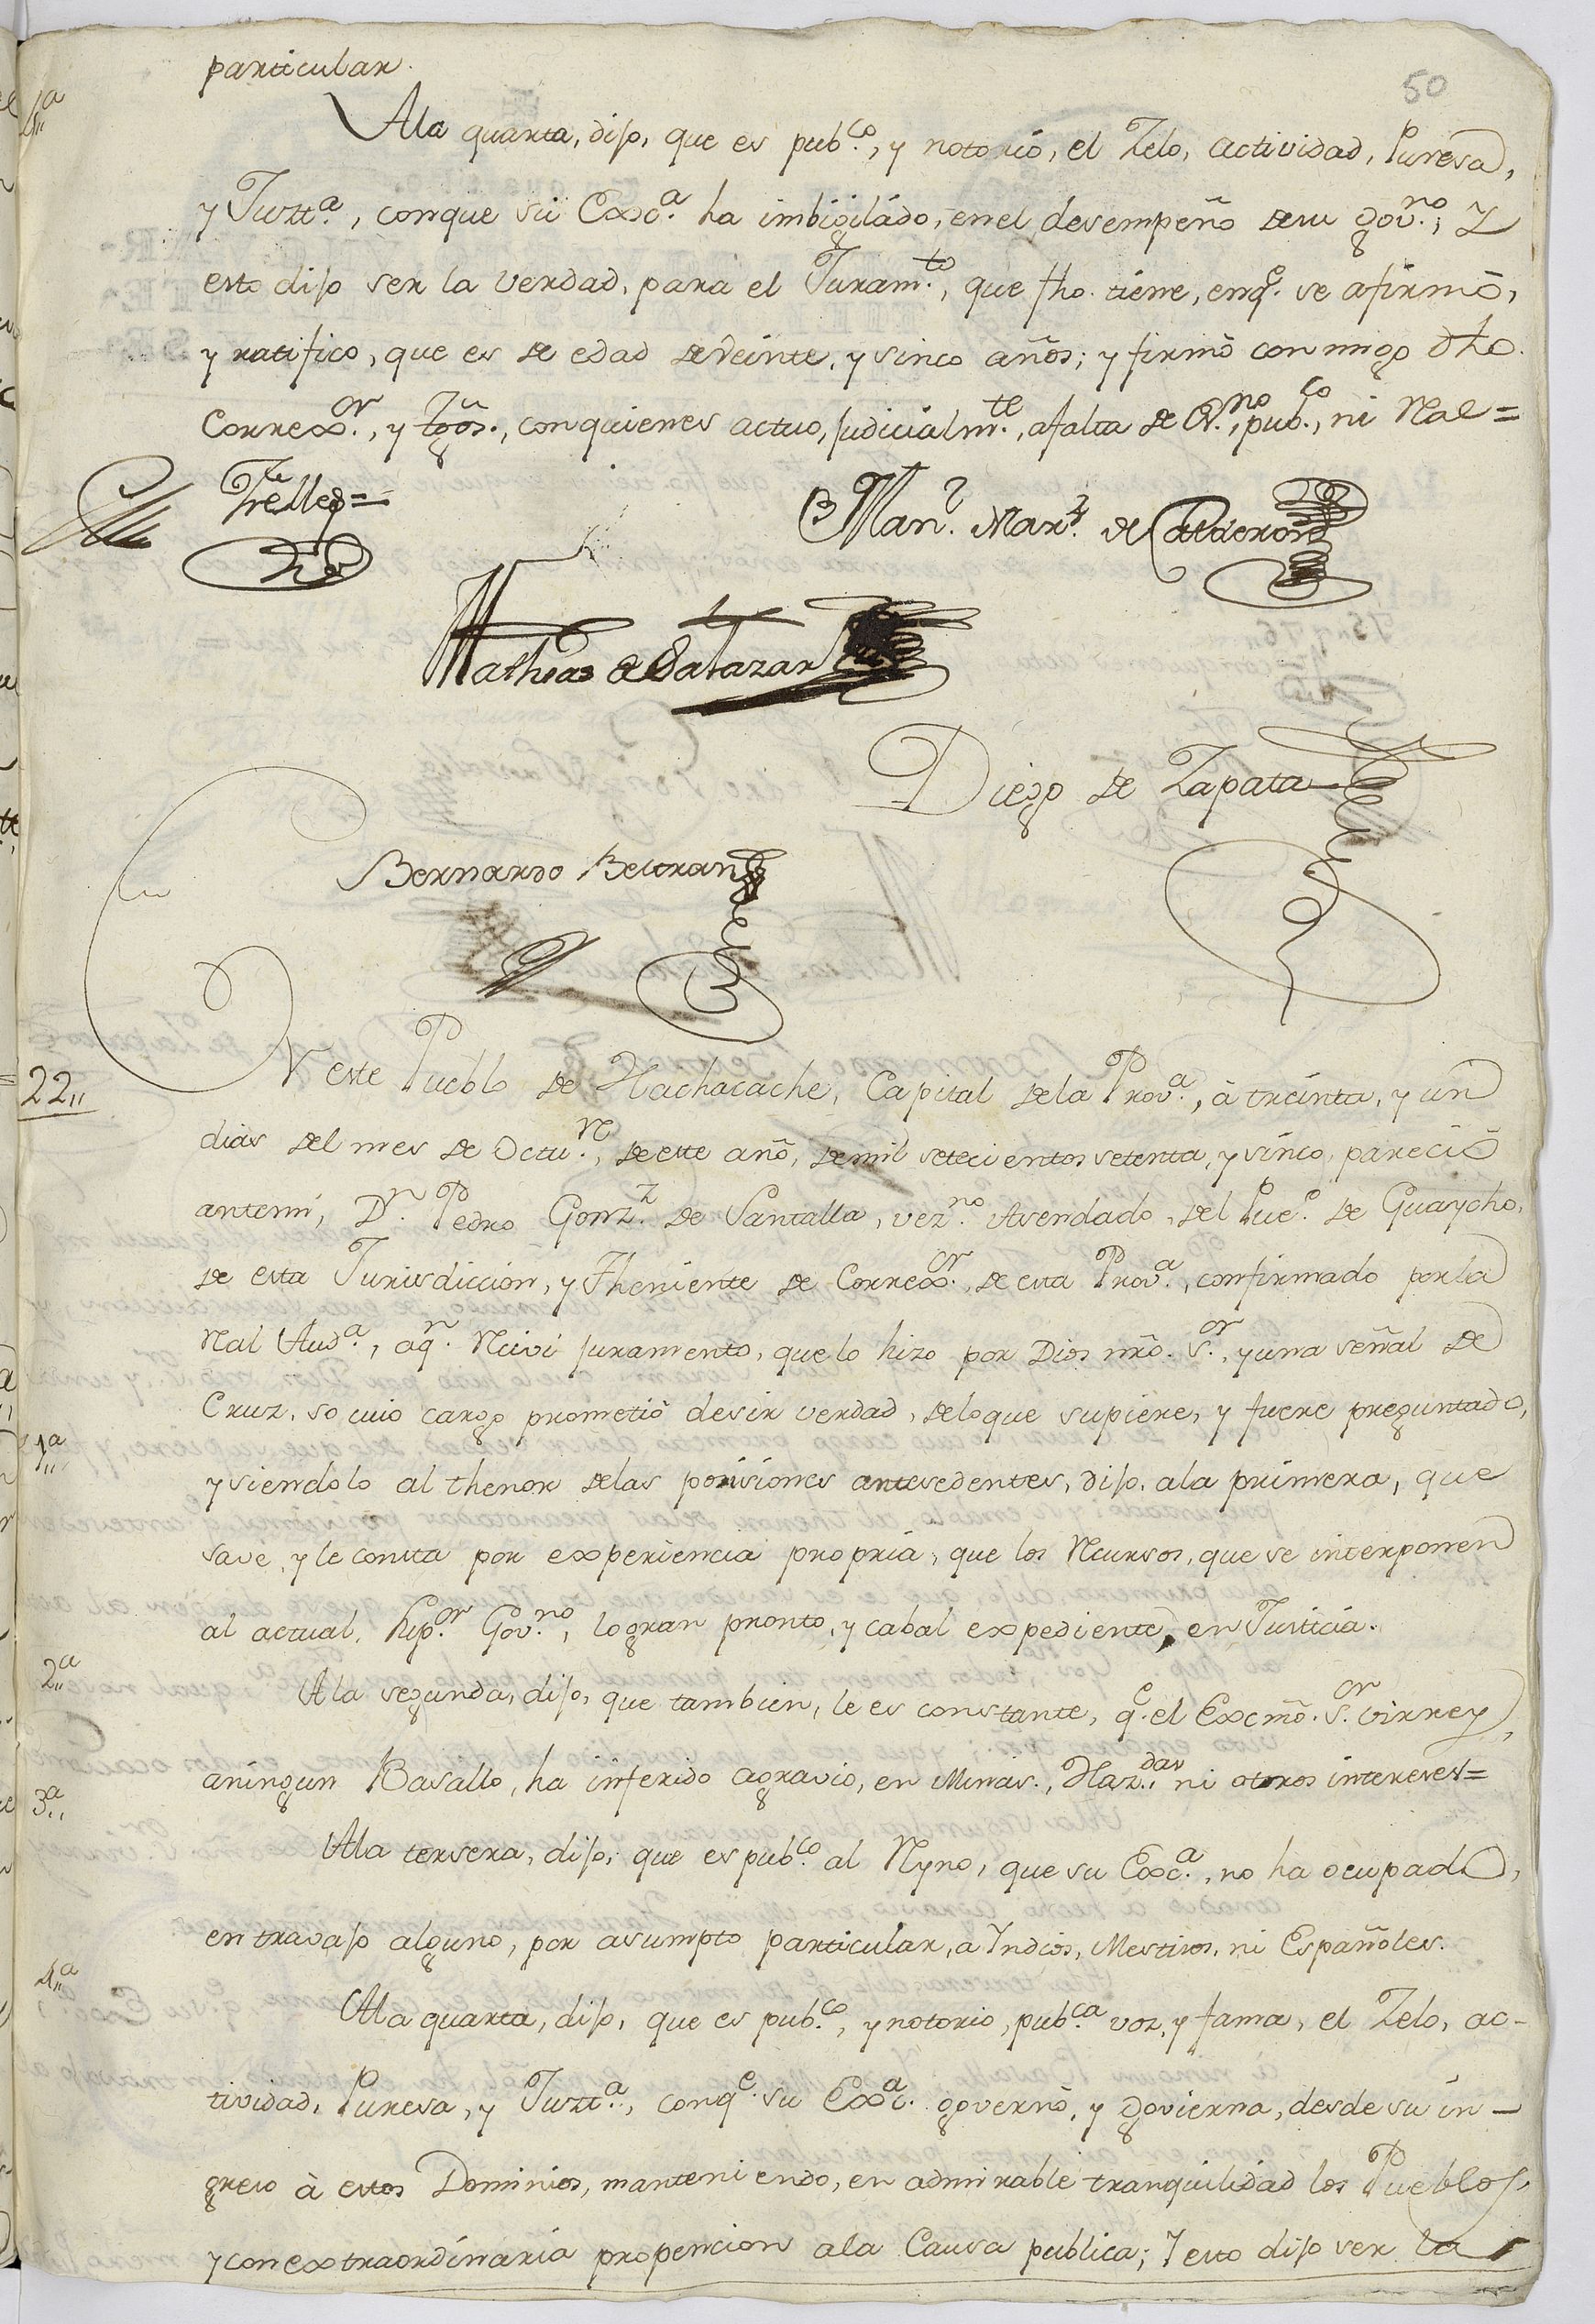 particular.
50
4,,a
Ala quarta, dijo, que es pub.co, y notorio, el Zelo, actividad, Puresa,
y Justt.a, conque su Exc.a ha imbigilado, enel desempeño desu gov.no; Y
esto dijo ser la verdad, para el Juram.to, que fho. tiene, enq.e se afirmó,
y ratifico, que es de edad deveinte, y sinco años; y firmó conmigo dho.
Correx.or, y tgos., conquienes actuo, judicialm.te, afalta de Es.no, pub.co, ni Ral=
Trelles=
Man.l Mar.z de Calderon
Mathias de Salazar
Diego de Zapata
Bernardo Beltran
22,,
En este Pueblo de Hachacache, Capital dela Prov.a, à treinta, y un
dias del mes de Octu.re, deeste año, demil setecientos setenta, y sinco, pareció
antemi, D.n Pedro Gonz.z de Santalla, vez.no Asendado, del Pue.o de Guaycho,
de esta Jurisdiccion, y Theniente de Correx.or, de esta Prov.a, confirmado porla
Ral Aud.a, aq.n Reciví juramento, quelo hizo por Dios nrõ. S.or, yuna señal de
Cruz, so cuio cargo prometió desir verdad, deloque supiere, y fuere preguntado,
1,,a
ysiendolo al thenor delas posisiones antesedentes, dijo, ala primera, que
save, y le consta por experiencia propria, que los Recursos, que se interponen
al actual, Sup.or Gov.no, logran pronto, y cabal expediente, en Justicia.
2,,a
Ala segunda, dijo, que tambien, le es constante, q.e el Excmõ. S.or Virrey,
aningun Basallo, ha inferido agravio, en Minas, Haz.das, ni otros intereses=
3,,a
Ala tersera, dijo, que es pub.co al Reyno, que su Exc.a, no ha ocupado,
en travajo alguno, por asumpto particular, a Yndios, Mestisos, ni Españoles.
4,,a
Ala quarta, dijo, que es pub.co, y notorio, pub.ca voz, y fama, el Zelo, ac-
tividad, Puresa, y Justt.a, conq.e su Exc.a governó, y govierna, desde su in-
greso à estos Dominios, manteniendo, en admirable tranquilidad los Pueblos,
y con extraordinaria propencion ala Causa publica; Y esto dijo ser la